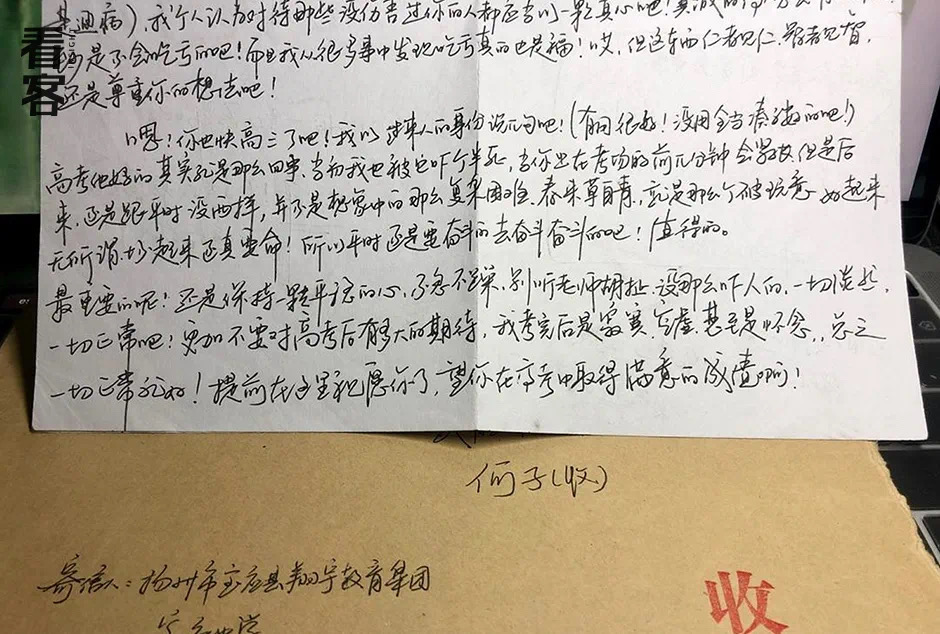 某通病），我个人认为对待那些没伤害过你的人都应当以一颗真心吧！真诚的
是不会吃亏的吧！而且我从很多事中发现吃亏真的也是福！哎，但这东西仁者见仁，智者见智，
还是尊重你的想法吧！
嗯！你也快高三了吧！我以过来人的身份说几句吧！（有用很好！没用全当凑数的吧！）
高考他妈的其实就是那么回事、当初我也被它吓个半死，当你坐在考场的前几分钟会紧张，但是后
来，还是跟平时没两样，并不是想象中的那么复杂困难。春来草自青，就是那么个破玩意，如起来
无所谓，炒起来还真要命！所以平时还是要奋斗的去奋斗奋斗的吧！值得的。
最重要的呢！还是保持一颗平常的心，不急不躁，别听老师胡扯，没那么吓人的，一切淡然，
一切正常吧！更加不要对高考后有多大的期待，我考完后是寂寞、空虚、甚至是怀念，，总之
一切正常就好！提前在这里祝愿你了，望你在高考中取得满意的成绩啊！
何子（收）
寄信人：扬州市宝应县翔宇教育集团
收
看客